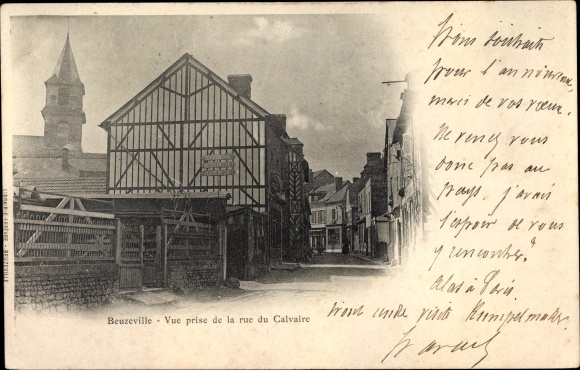 bons souhaits
pour l'an nouveau,
merci de vos vœux.
Ne venez vous
donc pas au
pays, j'avais
l'espoir de vous
y rencontrer.
à Paris.
rendre visite
Beuzeville - Vue prise de la rue du Calvaire